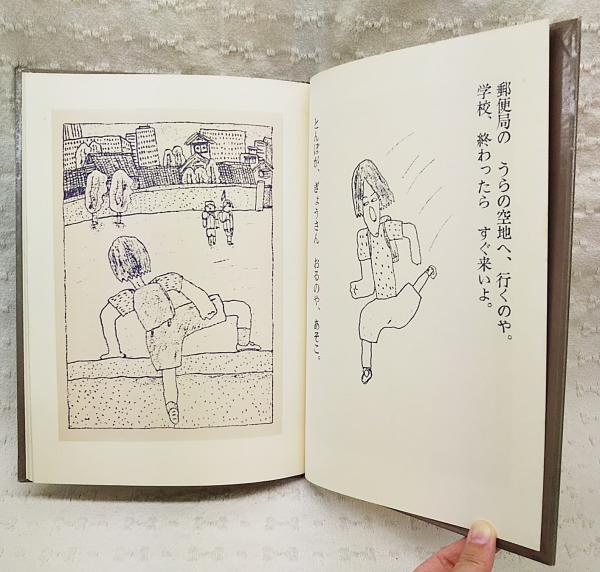 郵便局の うらの空地へ、行くのや。
学校、終わったら すぐ来いよ。
とんぼが、ぎょうさん おるのや、あそこ。